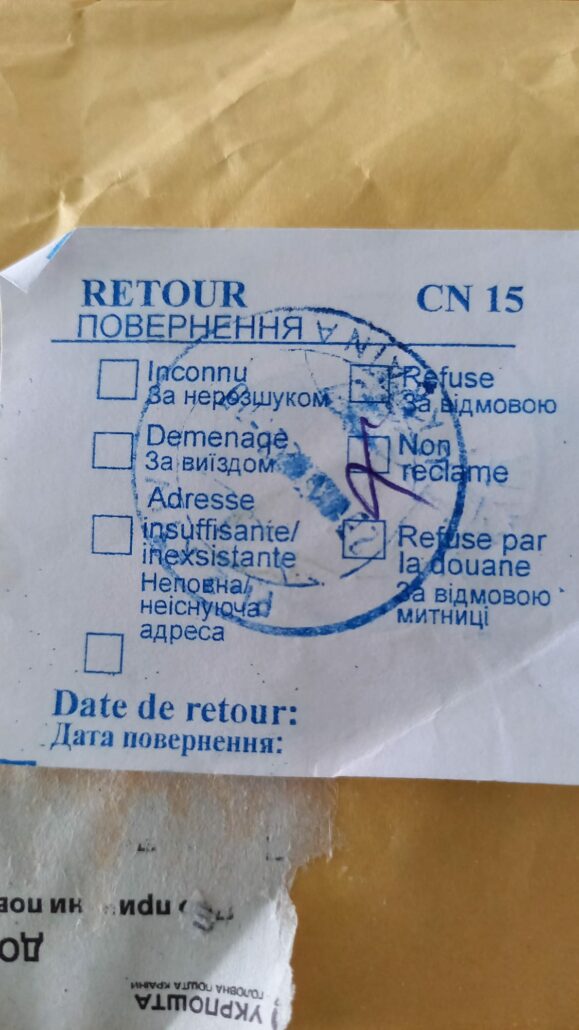 RETOUR
CN 15
ПОВЕРНЕННЯ
Inconnu
За нерозшуком
Demenage
За виїздом
Adresse
insuffisante/
inexsistante
Неповна/
неіснуюча
адреса
Refuse
За відмовою
Non
reclame
Refuse par
la douane
За відмовою
митниці
Date de retour:
Дата повернення:
при
ни пов
ДО
УКРПОШТА
ГОЛОВНА ПОШТА КРАЇНИ